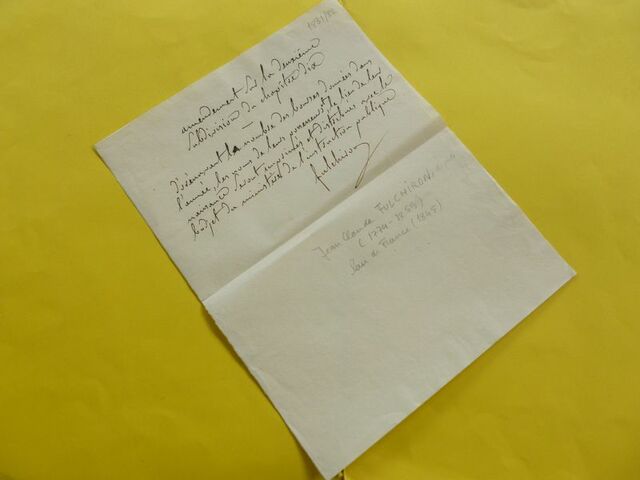 1831/32
amendement sur la deuxième
subdivision du chapitre dix
Désormais le nombre des bourses données dans
l'année, les noms de leurs possesseurs, le lieu de leur
naissance seront imprimés et distribués avec le
budget du ministère de l'instruction publique
fulchiron
Jean Claude FULCHIRON
(1774-1859)
Pair de France (1845)